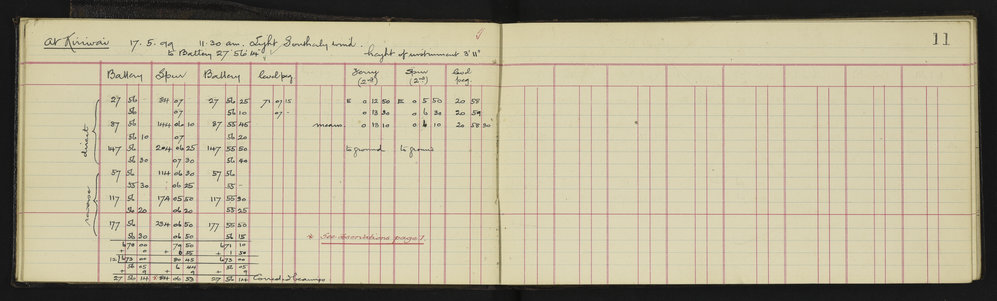 11
At Kiriwai 17.5.99 11.30 am. Light Southerly wind.
to Battery 27 56 14 height of instrument 3' 11"
Battery Spur Battery level peg Ferry (2nd) Spur (2nd) level peg
27 56 - 84 07 27 56 25 71 07 15 E 0 12 50 E 0 5 50 20 58
56 07 56 10 07 - 0 13 30 0 6 30 20 59
87 56 144 06 10 87 55 45 means 0 13 10 0 6 10 20 58 30
56 10 07 56 20
147 56 204 06 25 147 55 50 to ground to ground
56 30 07 30 56 40
direct
57 56 114 06 30 57 56
55 30 06 25 55 -
117 56 174 05 50 117 55 30
56 20 06 20 55 25
177 56 234 06 50 177 55 50
56 30 06 50 56 15
reverse
* See observations page 7.
670 00 79 50 671 10
+ 0 + 55 + 1 50
12 673 00 80 45 673 00
56 05 6 44 56 05
+ 9 + 9 + 9
27 56 14 84 06 53 27 56 14 Corrected bearings.